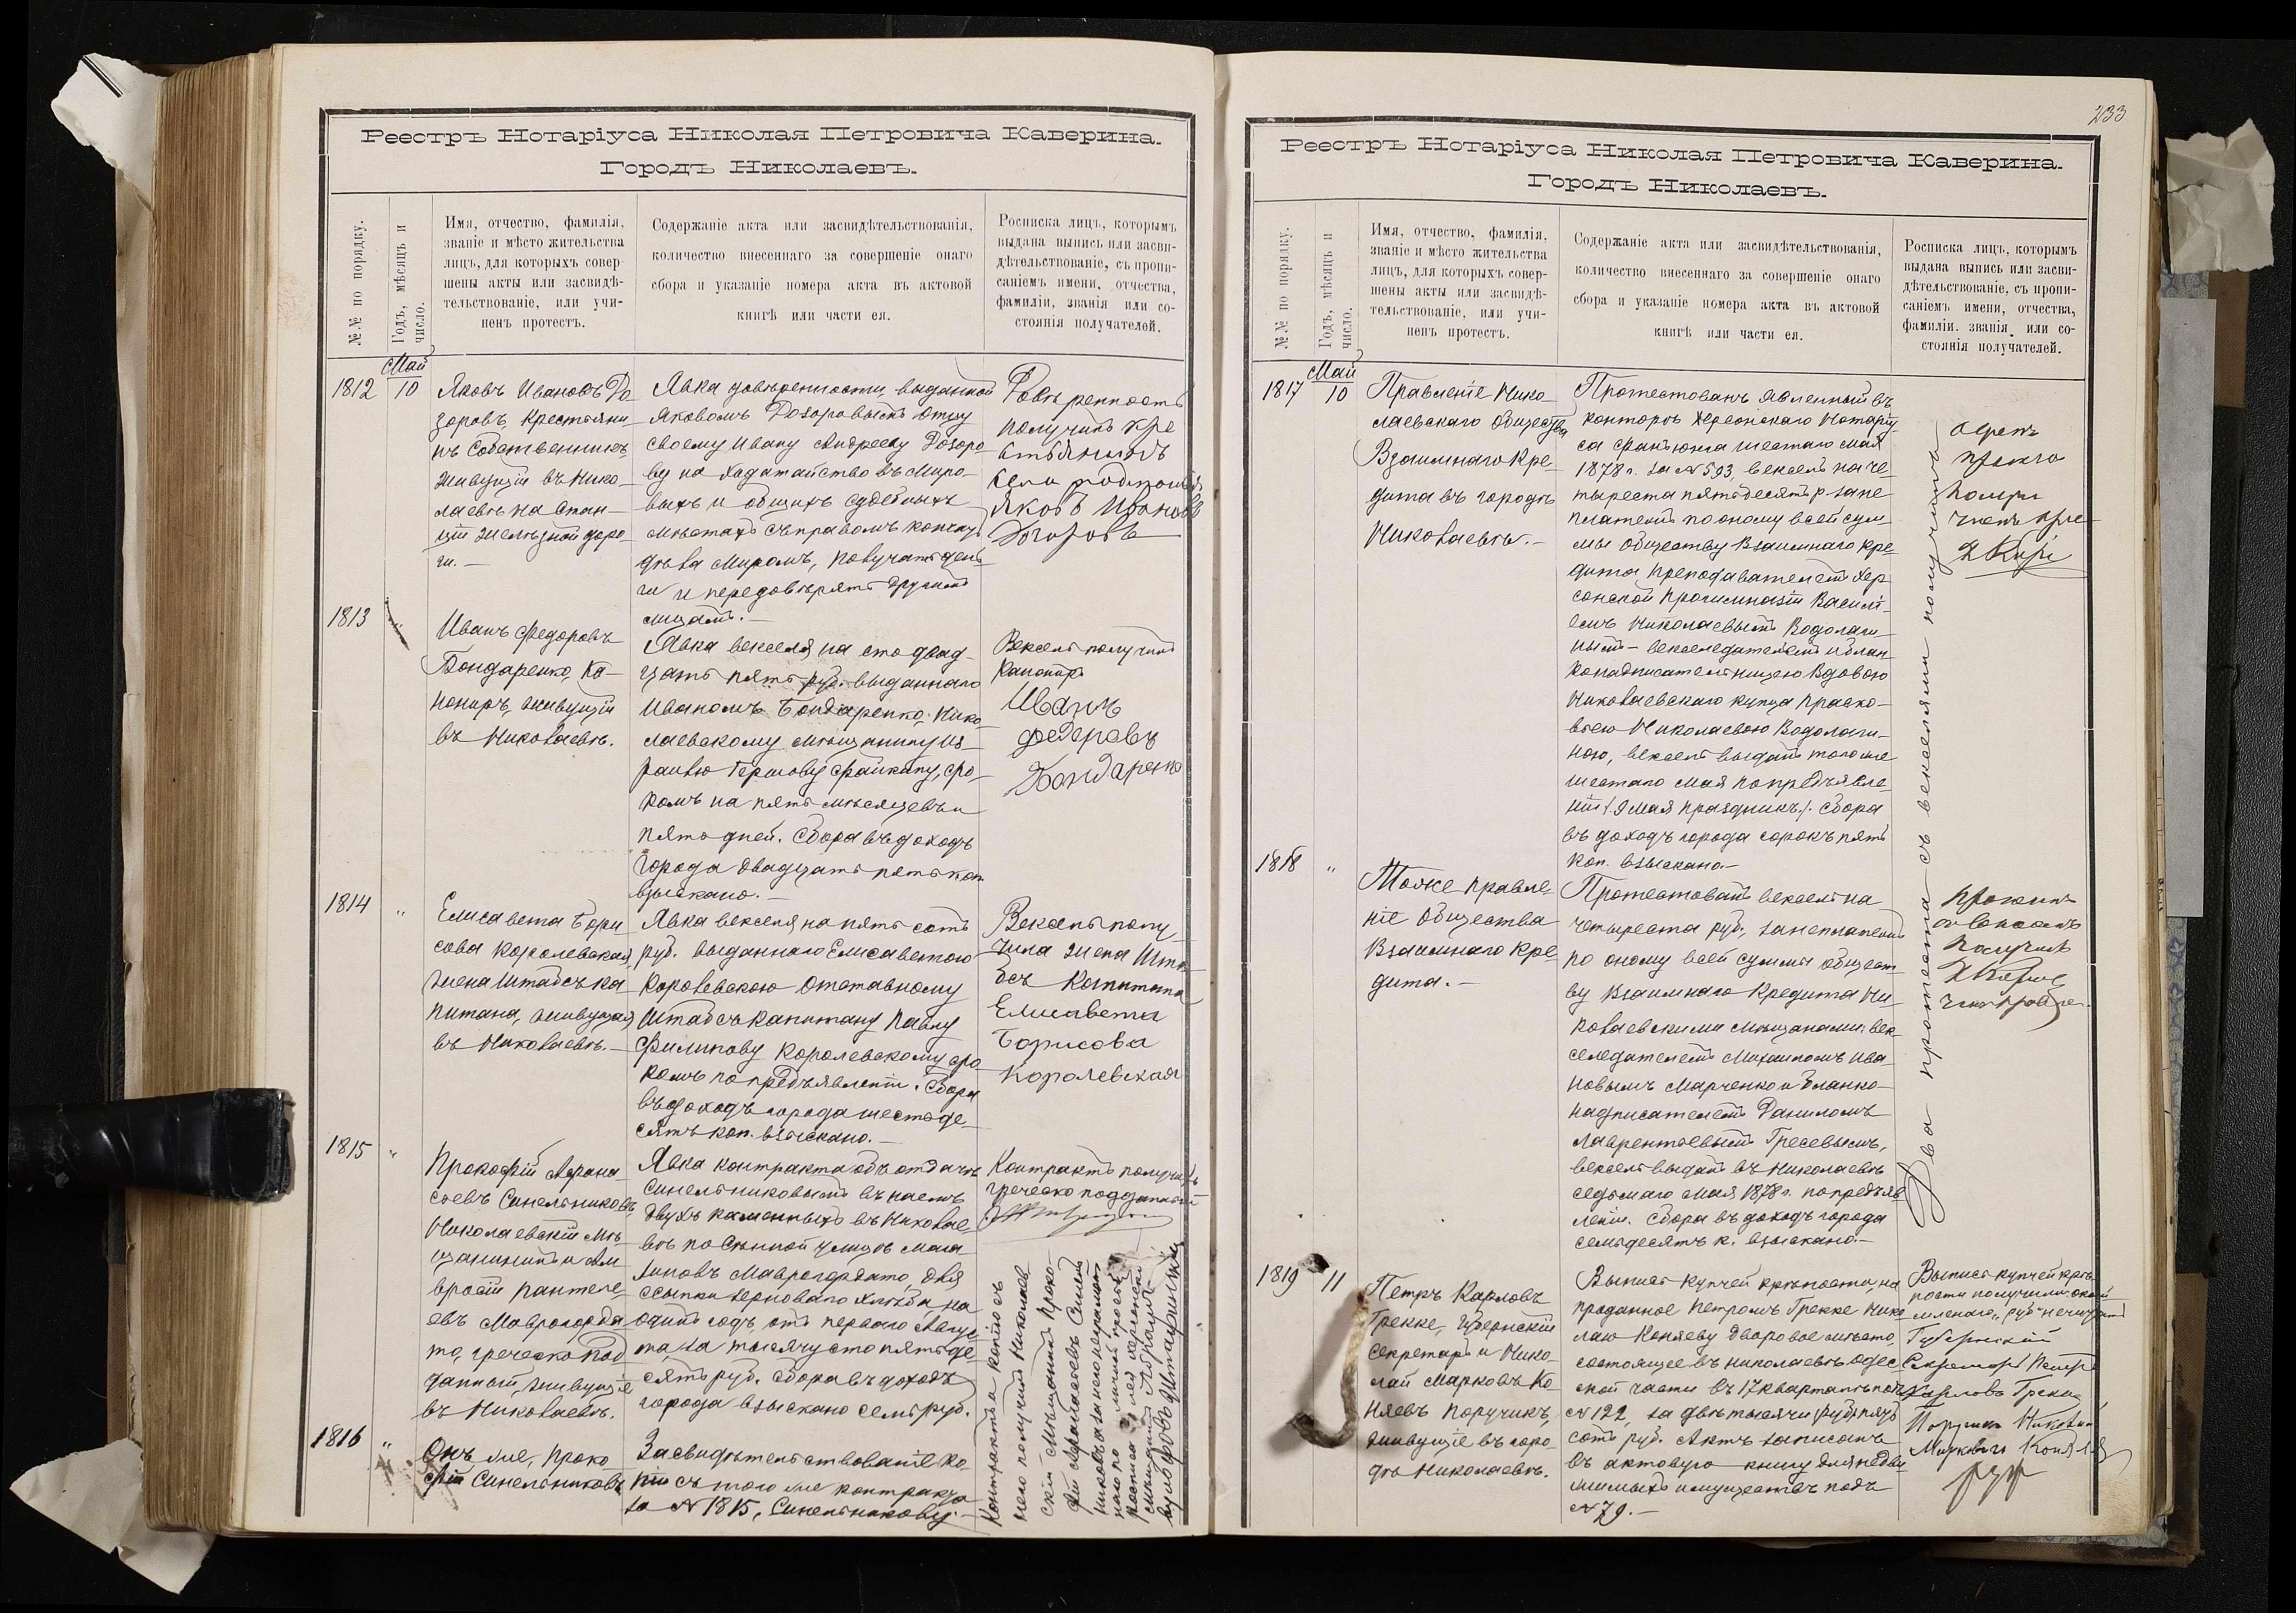 Реестръ Нотаріуса Николая Петровича Каверина.
Городъ Николаевъ.
№№ по порядку.
Годъ, мѣсяцъ и
число.
Имя, отчество, фамилія,
званіе и мѣсто жительства
лицъ, для которыхъ совер-
шены акты или засвидѣ-
тельствованіе, или учи-
ненъ протестъ.
Содержаніе акта или засвидѣтельствованія,
количество внесеннаго за совершеніе онаго
сбора и указаніе номера акта въ актовой
книгѣ или части ея.
Росписка лицъ, которымъ
выдана выпись или засви-
дѣтельствованіе, съ пропи-
саніемъ имени, отчества,
фамиліи, званія или со-
стоянія получателей.
Май
1812
10
Яковъ Ивановъ До
зоровъ, Крестьяни
нъ Собственникъ,
живущій въ Нико-
лаевѣ на Стан-
ціи желѣзной доро-
ги.-
Явка довѣренности, выданной
Яковомъ Дозоровымъ отцу
своему Ивану Андрееву Дозоро-
ву на ходатайство въ Миро-
выхъ и общихъ судебныхъ
мѣстахъ съ правомъ кончать
дѣла миромъ, получать день
ги и передовѣрять другимъ
лицамъ.-
Довѣренность
получилъ кре
стьянинъ
Яковъ Ивановъ
Дозоровъ
1813
Иванъ Федоровъ
Бондаренко, Ка-
нониръ, живущій
въ Николаевѣ.
Явка векселя на сто двад-
цать пять руб. выданнаго
Иваномъ Бондаренко, Нико
лаевскому мѣщанину Из-
раилю Гершову Файкину, сро-
комъ на пять мѣсяцевъ и
пять дней. Сбора въ доходъ
города двадцать пять коп.
взыскано.-
Вексель получилъ
Канониръ
Иванъ
Федоравъ
Бондаренко
1814
"
Елисавета Бори
сова Королевская,
жена Штабсъ ка
питана, живущая
въ Николаевѣ.-
Явка векселя на пять сотъ
руб. выданнаго Елисаветою
Королевскою отставному
Штабсъ капитану Павлу
Филипову Королевскому сро
комъ по предъявленіи. Сбора
въ доходъ города шестьде-
сятъ коп. взыскано.-
Вексель полу
чила жена Шта
бсъ Капитана
Елисавета
Борисова
Королевская
1815
"
Прокофій Афана
сьевъ Синельниковъ,
Николаевскій мѣ-
щанинъ и Ам
вросій Пантеле-
евъ Маврогорда
то, греческо под
данный, живущіе
въ Николаевѣ.
Явка контракта объ отдачѣ
Синельниковымъ въ наемъ
двухъ каменныхъ въ Николае-
вѣ по Сѣнной улицѣ мага
зиновъ Маврогордато, для
ссыпки зерноваго хлѣба на
одинъ годъ, отъ перваго Авгус
та, за тысячу сто пятьде-
сятъ руб. Сбора въ доходъ
города взыскано семь руб.
Контрактъ получилъ
греческо подданный
1816
"
Онъ же, Проко
фій Синельниковъ
Засвидѣтельствованіе ко-
піи съ того же контракта
за № 1815, Синельникову.-
Контракта копію съ
него получилъ Николаев
скій мѣщанинъ Проко-
фій Афанасьевъ Синель
никовъ а за него неграмот
наго по личной просьбѣ
233
Реестръ Нотаріуса Николая Петровича Каверина.
Городъ Николаевъ.
№№ по порядку.
Годъ, мѣсяцъ и
число.
Имя, отчество, фамилія,
званіе и мѣсто жительства
лицъ, для которыхъ совер-
шены акты или засвидѣ-
тельствованіе, или учи-
ненъ протестъ.
Содержаніе акта или засвидѣтельствованія,
количество внесеннаго за совершеніе онаго
сбора и указаніе номера акта въ актовой
книгѣ или части ея.
Росписка лицъ, которымъ
выдана выпись или засви-
дѣтельствованіе, съ пропи-
саніемъ имени, отчества,
фамиліи. званія или со-
стоянія получателей.
Май
1817
10
Правленіе Нико
лаевскаго Общества
Взаимнаго Кре-
дита въ городѣ
Николаевѣ.-
Протестованъ явленный въ
конторѣ Херсонскаго Нотаріу
са шестаго мая
1878 г. за № 593, вексель на че
тыреста пятьдесятъ р. за не
платежъ по оному всей сум-
мы Обществу Взаимнаго Кре-
дита преподавателемъ Хер
сонской Прогимназіи Василі-
емъ Николаевымъ Водолаги-
нымъ- векселедателемъ и блан-
конадписательницею Вдовою
Николаевскаго купца Праско-
вьею Николаевою Водолаги-
ною, вексель выданъ того же
шестаго мая по предъявле-
ніи (9 мая праздникъ). Сбора
въ доходъ города сорокъ пять
коп. взыскано-
Два протеста съ векселями получилъ
1818
"
Тоже Правле-
ніе Общества
Взаимнаго Кре-
дита.-
Протестованъ вексель на
четыреста руб. за неплатежъ
по оному всей суммы Общест
ву Взаимнаго Кредита Ни-
колаевскими мѣщанами: век
селедателемъ Михаиломъ Ива
новымъ Марченко и бланко-
надписателемъ Даниломъ
Лаврентьевымъ Гресевымъ,
вексель выданъ въ Николаевѣ
седьмаго мая 1878 г. по предъяв
леніи. Сбора въ доходъ города
семьдесятъ к. взыскано.-
получилъ
1819
11
Петръ Карловъ
Грекке, Губернскій
Секретарь и Нико-
лай Марковъ Ко
няевъ Поручикъ,
живущіе въ горо-
дѣ Николаевѣ.
Выпись купчей крѣпости, на
проданное Петромъ Грекке Нико
лаю Коняеву дворовое мѣсто,
состоящее въ Николаевѣ Одес
ской части въ 17 кварталѣ подъ
№ 122, за двѣ тысячи пять
сотъ руб. Актъ записанъ
въ актовую книгу для недви
жимыхъ имуществъ подъ
№ 79.-
Выпись купчей крѣ-
пости получили:
Губернскій
Секретарь Петръ
Карловъ Грекке
Поручикъ Николай
Марковъ Коняевъ